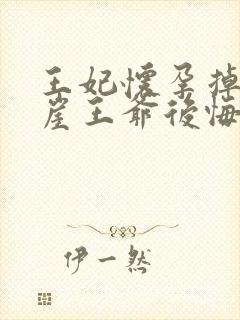 王妃懷孕掉
崖王爺後悔
伊一然